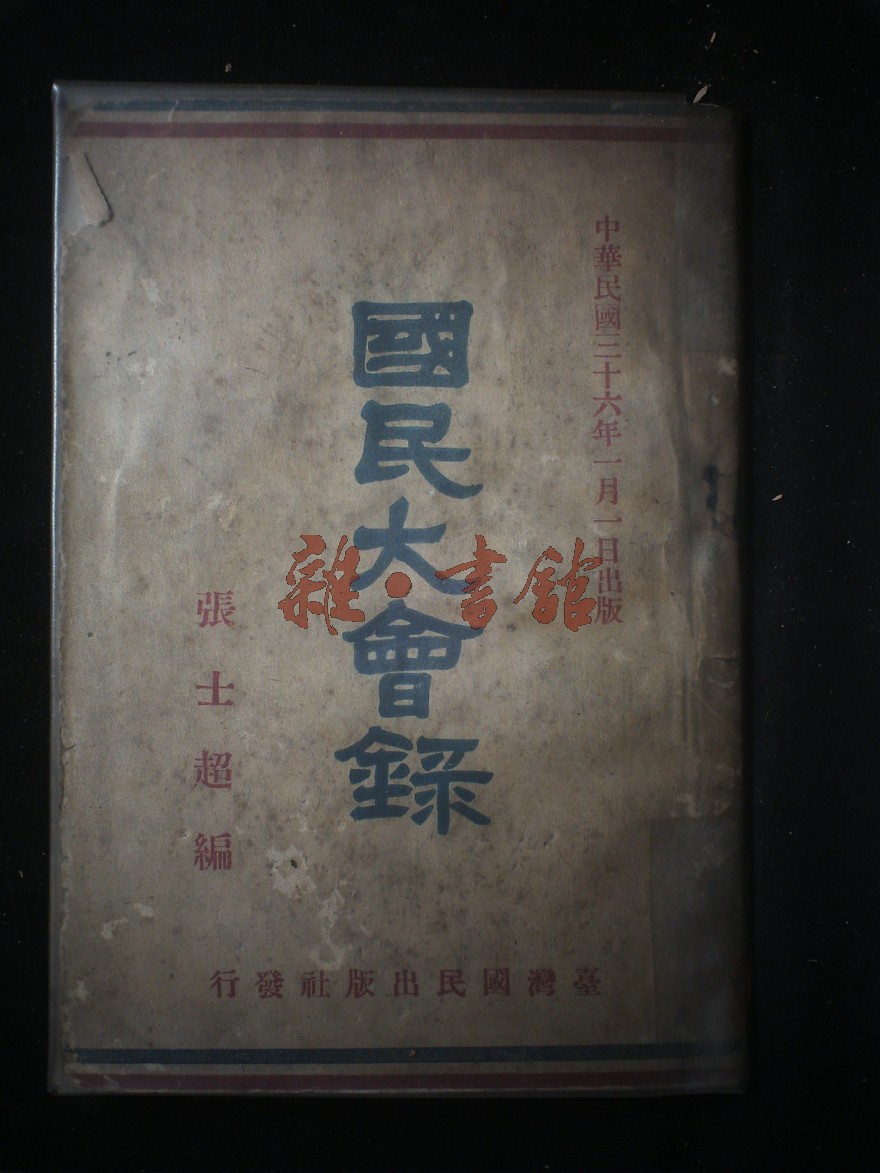 中華民國三十六年一月一日出版
國民大會錄
張士超編
臺灣國民出版社發行
雜·書館